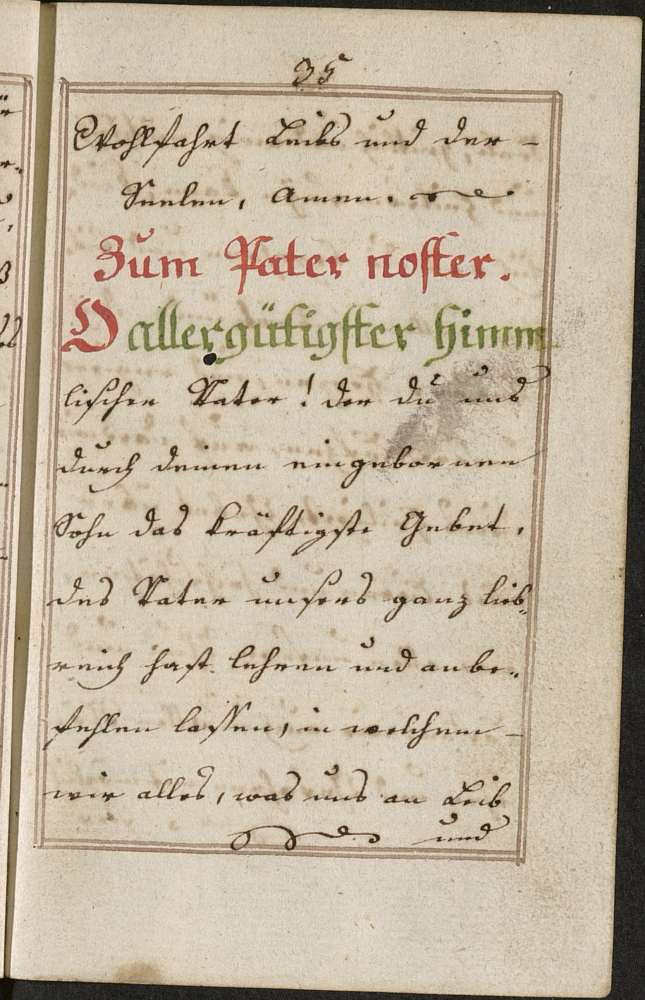 35
Wohlfahrt Leibs und der -
Seelen, Amen.
Zum Pater noster.
O allergütigster Himm
lischer Vater! der du uns
durch deinen eingebornen
Sohn das kräftigste Gebet,
des Vater unsers ganz lieb„
reich hast lehren und anbe„
fehlen lassen, in welchem -
wir alles, was uns an Leib
und